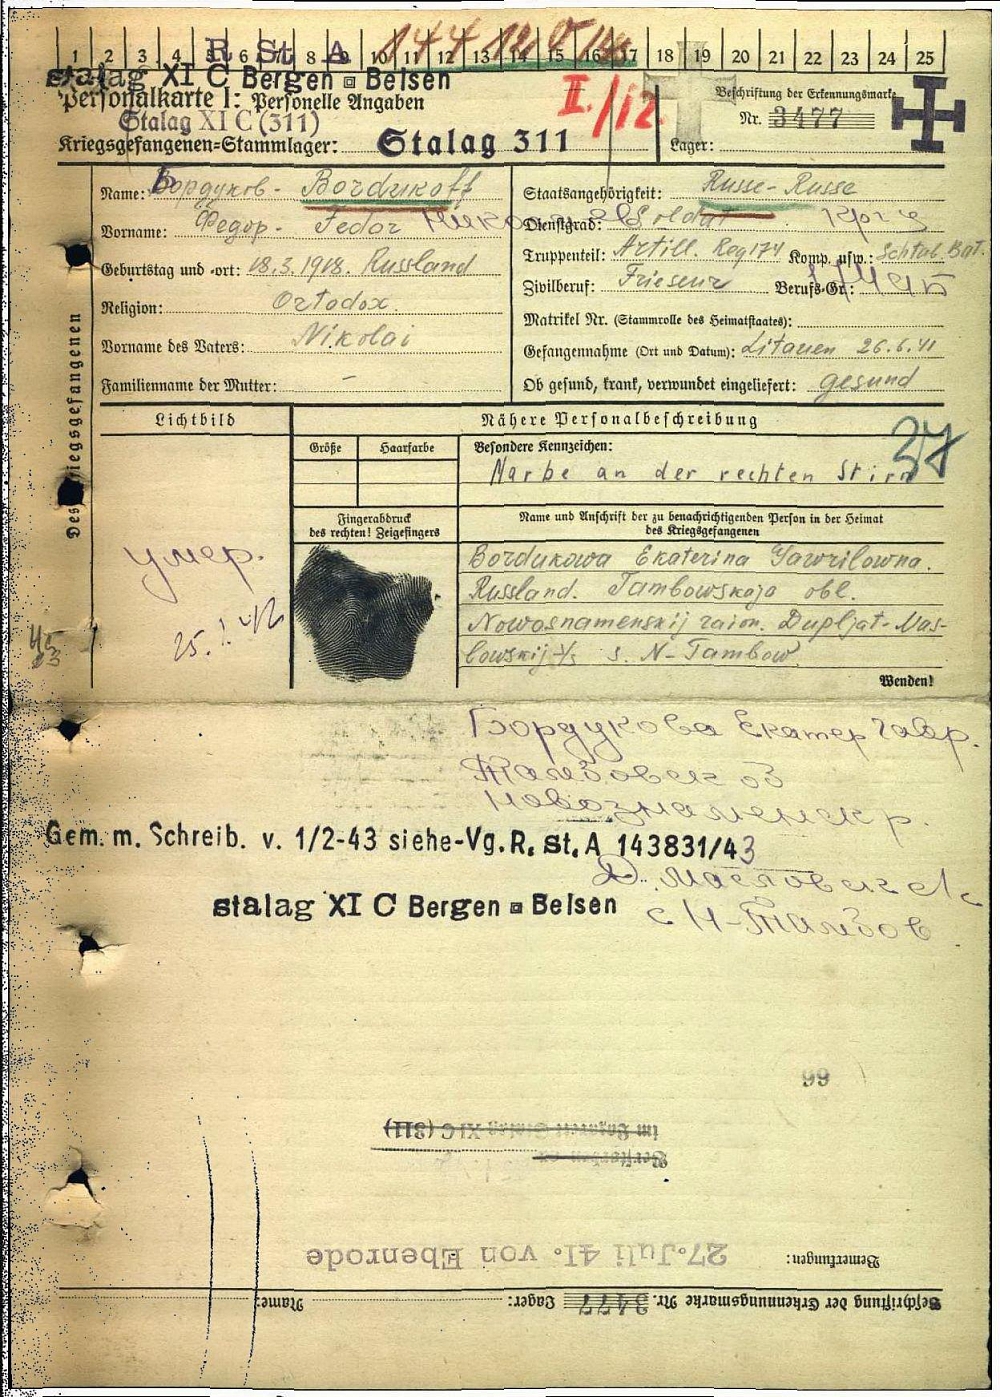 1 2 3 4 5 6 7 8 9 10 11 12 13 14 15 16 17 18 19 20 21 22 23 24 25
R St A
Stalag XI C Bergen Belsen
I./12.
Personalkarte I: Personelle Angaben
Beschriftung der Erkennungsmarke
Stalag XI C (311)
Nr. 3477
Kriegsgefangenen-Stammlager: Stalag 311
Lager:
Des Kriegsgefangenen
Name: Бордуков - Bordukoff
Staatsangehörigkeit: Russe - Russe
Vorname: Федор - Fedor
Dienstgrad: Soldat
Geburtstag und -ort: 18.3.1918. Russland
Truppenteil: Artill. Reg 174 Komp. usw.: Schtab. Bat.
Religion: Ortodox.
Zivilberuf: Friseur Berufs-Gr.:
Matrikel Nr. (Stammrolle des Heimatstaates):
Vorname des Vaters: Nikolai
Gefangennahme (Ort und Datum): Litauen 26.6.41
Familienname der Mutter: -
Ob gesund, krank, verwundet eingeliefert: gesund
Lichtbild
Nähere Personalbeschreibung
37
Größe Haarfarbe
Besondere Kennzeichen:
Narbe an der rechten Stirn
Fingerabdruck
des rechten! Zeigefingers
Name und Anschrift der zu benachrichtigenden Person in der Heimat
des Kriegsgefangenen
умер.
Bordukowa Ekaterina Gawrilowna.
Russland. Tambowskaja obl.
Nowosnamenskij raion. Dupljat-Mas-
lowskij s. N-Tambow.
Wenden!
Бордукова Екатер Гавр.
Тамбовск об
Новознаменск р.
Gem. m. Schreib. v. 1/2-43 siehe-Vg. R. St. A 143831/43
Д. Масловск с/с
Stalag XI C Bergen Belsen
с Н-Тамбов
99
im Lazarett Stalag XI C (311)
Verstorben am
Bemerkungen: 27. Juli 41. von Ebenrode
Beschriftung der Erkennungsmarke Nr. 3477 Lager: Name: